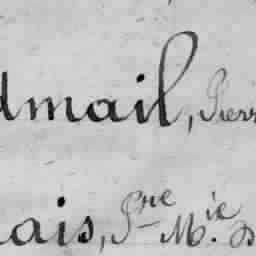 dmail, Pierr
lais, Pre Mie D